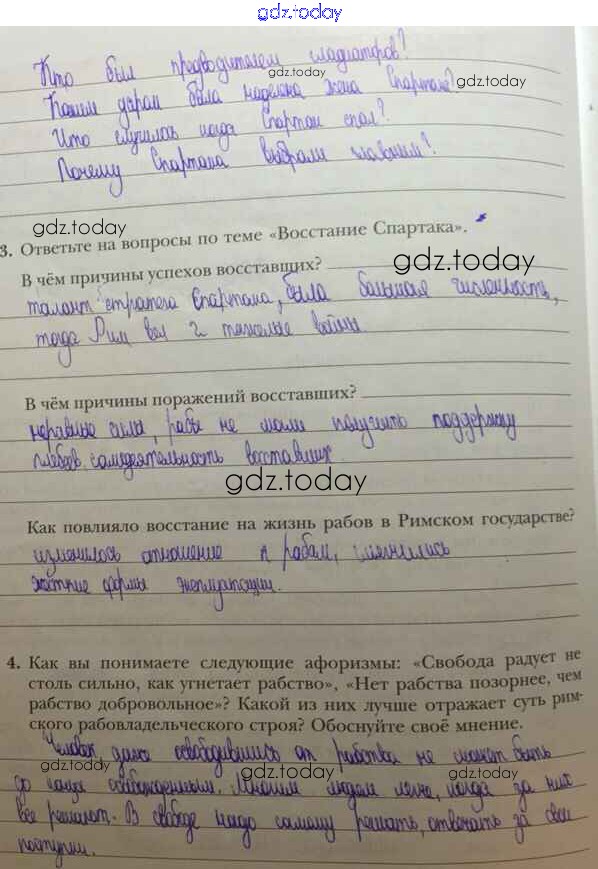 gdz.today
Кто был предводителем гладиаторов?
gdz.today
gdz.today
Каким даром была наделена жена Спартака?
Что случилось когда Спартак спал?
Почему Спартака выбрали главным?
gdz.today
3. Ответьте на вопросы по теме «Восстание Спартака».
В чём причины успехов восставших?
gdz.today
талант стратега Спартака, была большая численность,
тогда Рим вел 2 тяжелые войны
В чём причины поражений восставших?
неравные силы, рабы не могли получить поддержку
плебеев, самодеятельность восставших.
gdz.today
Как повлияло восстание на жизнь рабов в Римском государстве?
изменилось отношение к рабам, смягчились
жесткие формы эксплуатации.
4. Как вы понимаете следующие афоризмы: «Свобода радует не
столь сильно, как угнетает рабство», «Нет рабства позорнее, чем
рабство добровольное»? Какой из них лучше отражает суть рим-
ского рабовладельческого строя? Обоснуйте своё мнение.
Человек, даже освободившись от рабства не может быть
gdz.today
gdz.today
gdz.today
до конца освобожденным. Многим людям легче, когда за них
все решают. В свободе надо самому решать, отвечать за свои
поступки.